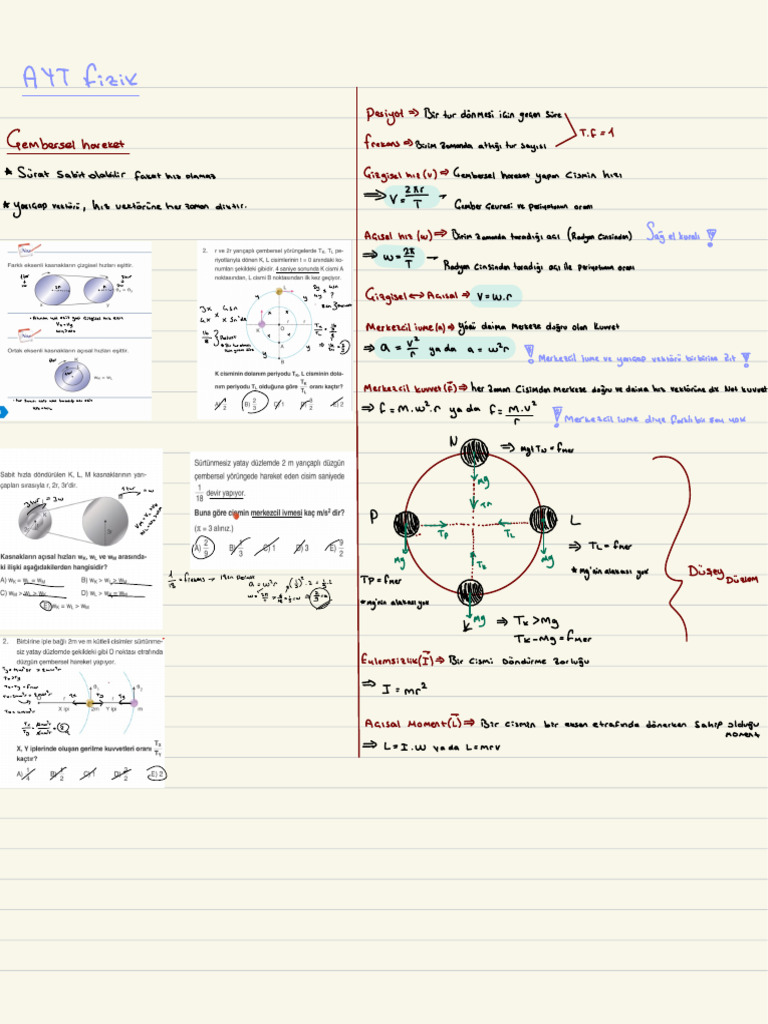 AYT fizik
Çembersel hareket
* Sürat sabit olabilir fakat hız olamaz
* yarıçap vektörü, hız vektörüne her zaman diktir.
Not
Farklı eksenli kasnakların çizgisel hızları eşittir.
Ortak eksenli kasnakların açısal hızları eşittir.
2. r ve 2r yarıçaplı çembersel yörüngelerde TK, TL pe-
riyotlarıyla dönen K, L cisimlerinin t = 0 anındaki ko-
numları şekildeki gibidir. 4 saniye sonunda K cismi A
noktasından, L cismi B noktasından ilk kez geçiyor.
K cisminin dolanım periyodu TK, L cisminin dola-
nım periyodu TL olduğuna göre TK/TL oranı kaçtır?
A) 1/2 B) 2/3 C) 1 D) 3/2 E) 2
Sabit hızla döndürülen K, L, M kasnaklarının yarı-
çapları sırasıyla r, 2r, 3r'dir.
Kasnakların açısal hızları wK, wL ve wM arasında-
ki ilişki aşağıdakilerden hangisidir?
A) wK = wL = wM B) wK > wL > wM
C) wM > wL > wK D) wL > wK = wM
E) wK = wL > wM
Sürtünmesiz yatay düzlemde 2 m yarıçaplı düzgün
çembersel yörüngede hareket eden cisim saniyede
1/18 devir yapıyor.
Buna göre cismin merkezcil ivmesi kaç m/s² dir?
(π = 3 alınız.)
A) 2/9 B) 1/3 C) 1 D) 3 E) 9/2
2. Birbirine iple bağlı 2m ve m kütleli cisimler sürtünme-
siz yatay düzlemde şekildeki gibi O noktası etrafında
düzgün çembersel hareket yapıyor.
X ipi 2m Y ipi m
X, Y iplerinde oluşan gerilme kuvvetleri oranı TX/TY
kaçtır?
A) 1/4 B) 1/2 C) 1 D) 3/2 E) 2
Pesiyot ⇒ Bir tur dönmesi için geçen süre
frekans ⇒ Birim zamanda attığı tur sayısı
T.f = 1
Çizgisel hız (v) ⇒ Çembersel hareket yapan cismin hızı
⇒ V = 2πr/T → Çember Çevresi ve periyotunun oranı
Açısal hız (w) ⇒ Birim zamanda taradığı açı (Radyan cinsinden) Sağ el kuralı !
⇒ w = 2π/T → Radyan cinsinden taradığı açı ile periyotunun oranı
Çizgisel ↔ Açısal ⇒ V = w.r
Merkezcil ivme (a) ⇒ Yönü daima merkeze doğru olan kuvvet
⇒ a = v²/r ya da a = w²r ! Merkezcil ivme ve yarıçap vektörü birbirine zıt !
Merkezcil kuvvet (F) ⇒ her zaman cisimden merkeze doğru ve daima hız vektörüne dik Net kuvvet
⇒ f = m.w².r ya da f = m.v²/r ! Merkezcil ivme diye farklı bir şey yok
N ⇒ mg+TN = fmer
mg
TN
P L
TP TL
mg mg
⇒ TL = fmer
* mg'nin alakası yok
TP = fmer
* mg'nin alakası yok
TK
mg
K ⇒ TK > Mg
TK - Mg = fmer
Düşey
Düzlem
Eylemsizlik (I) ⇒ Bir cismi döndürme zorluğu
⇒ I = mr²
Açısal Moment (L) ⇒ Bir cismin bir eksen etrafında dönerken sahip olduğu
moment
⇒ L = I.w ya da L = mrv